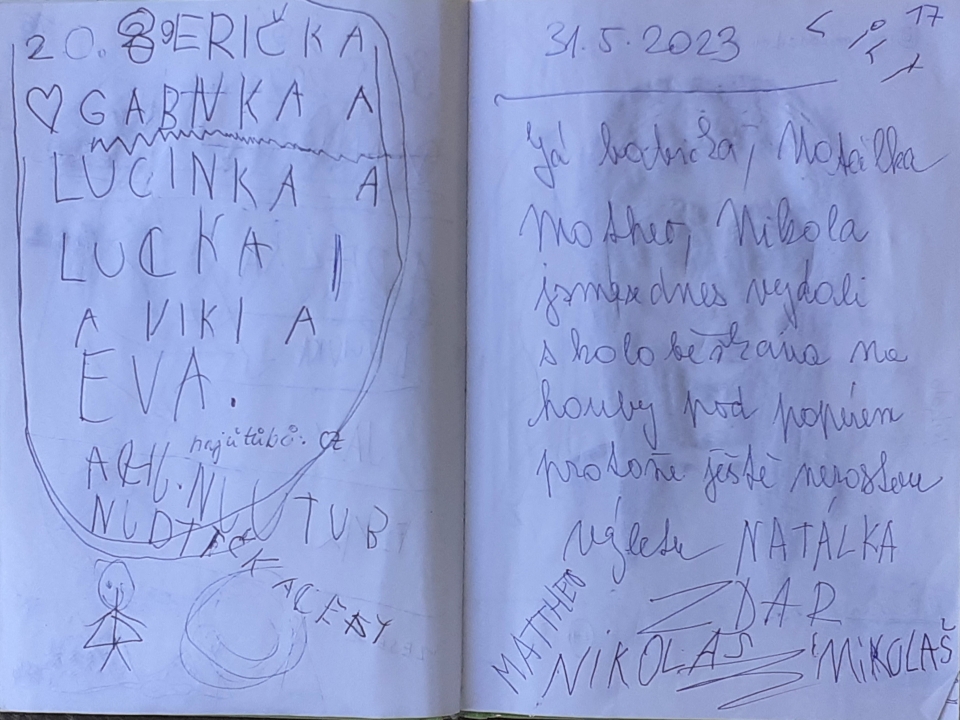 20. 8 9 ERIČKA
GABNKA A
LUCINKA A
LUCKA I
A VIKI A
EVA.
najůtůbů. cz
TUB
KACEBY
17
31.5.2023
Já babička, Natálka
Mather, Nikola
jsme dnes vydali
s koloběžkáma na
houby pod popúrem
protože ještě nerostou
výletu NATÁLKA
ZDAR
MATHEO
NIKOLAS MIKOLAŠ